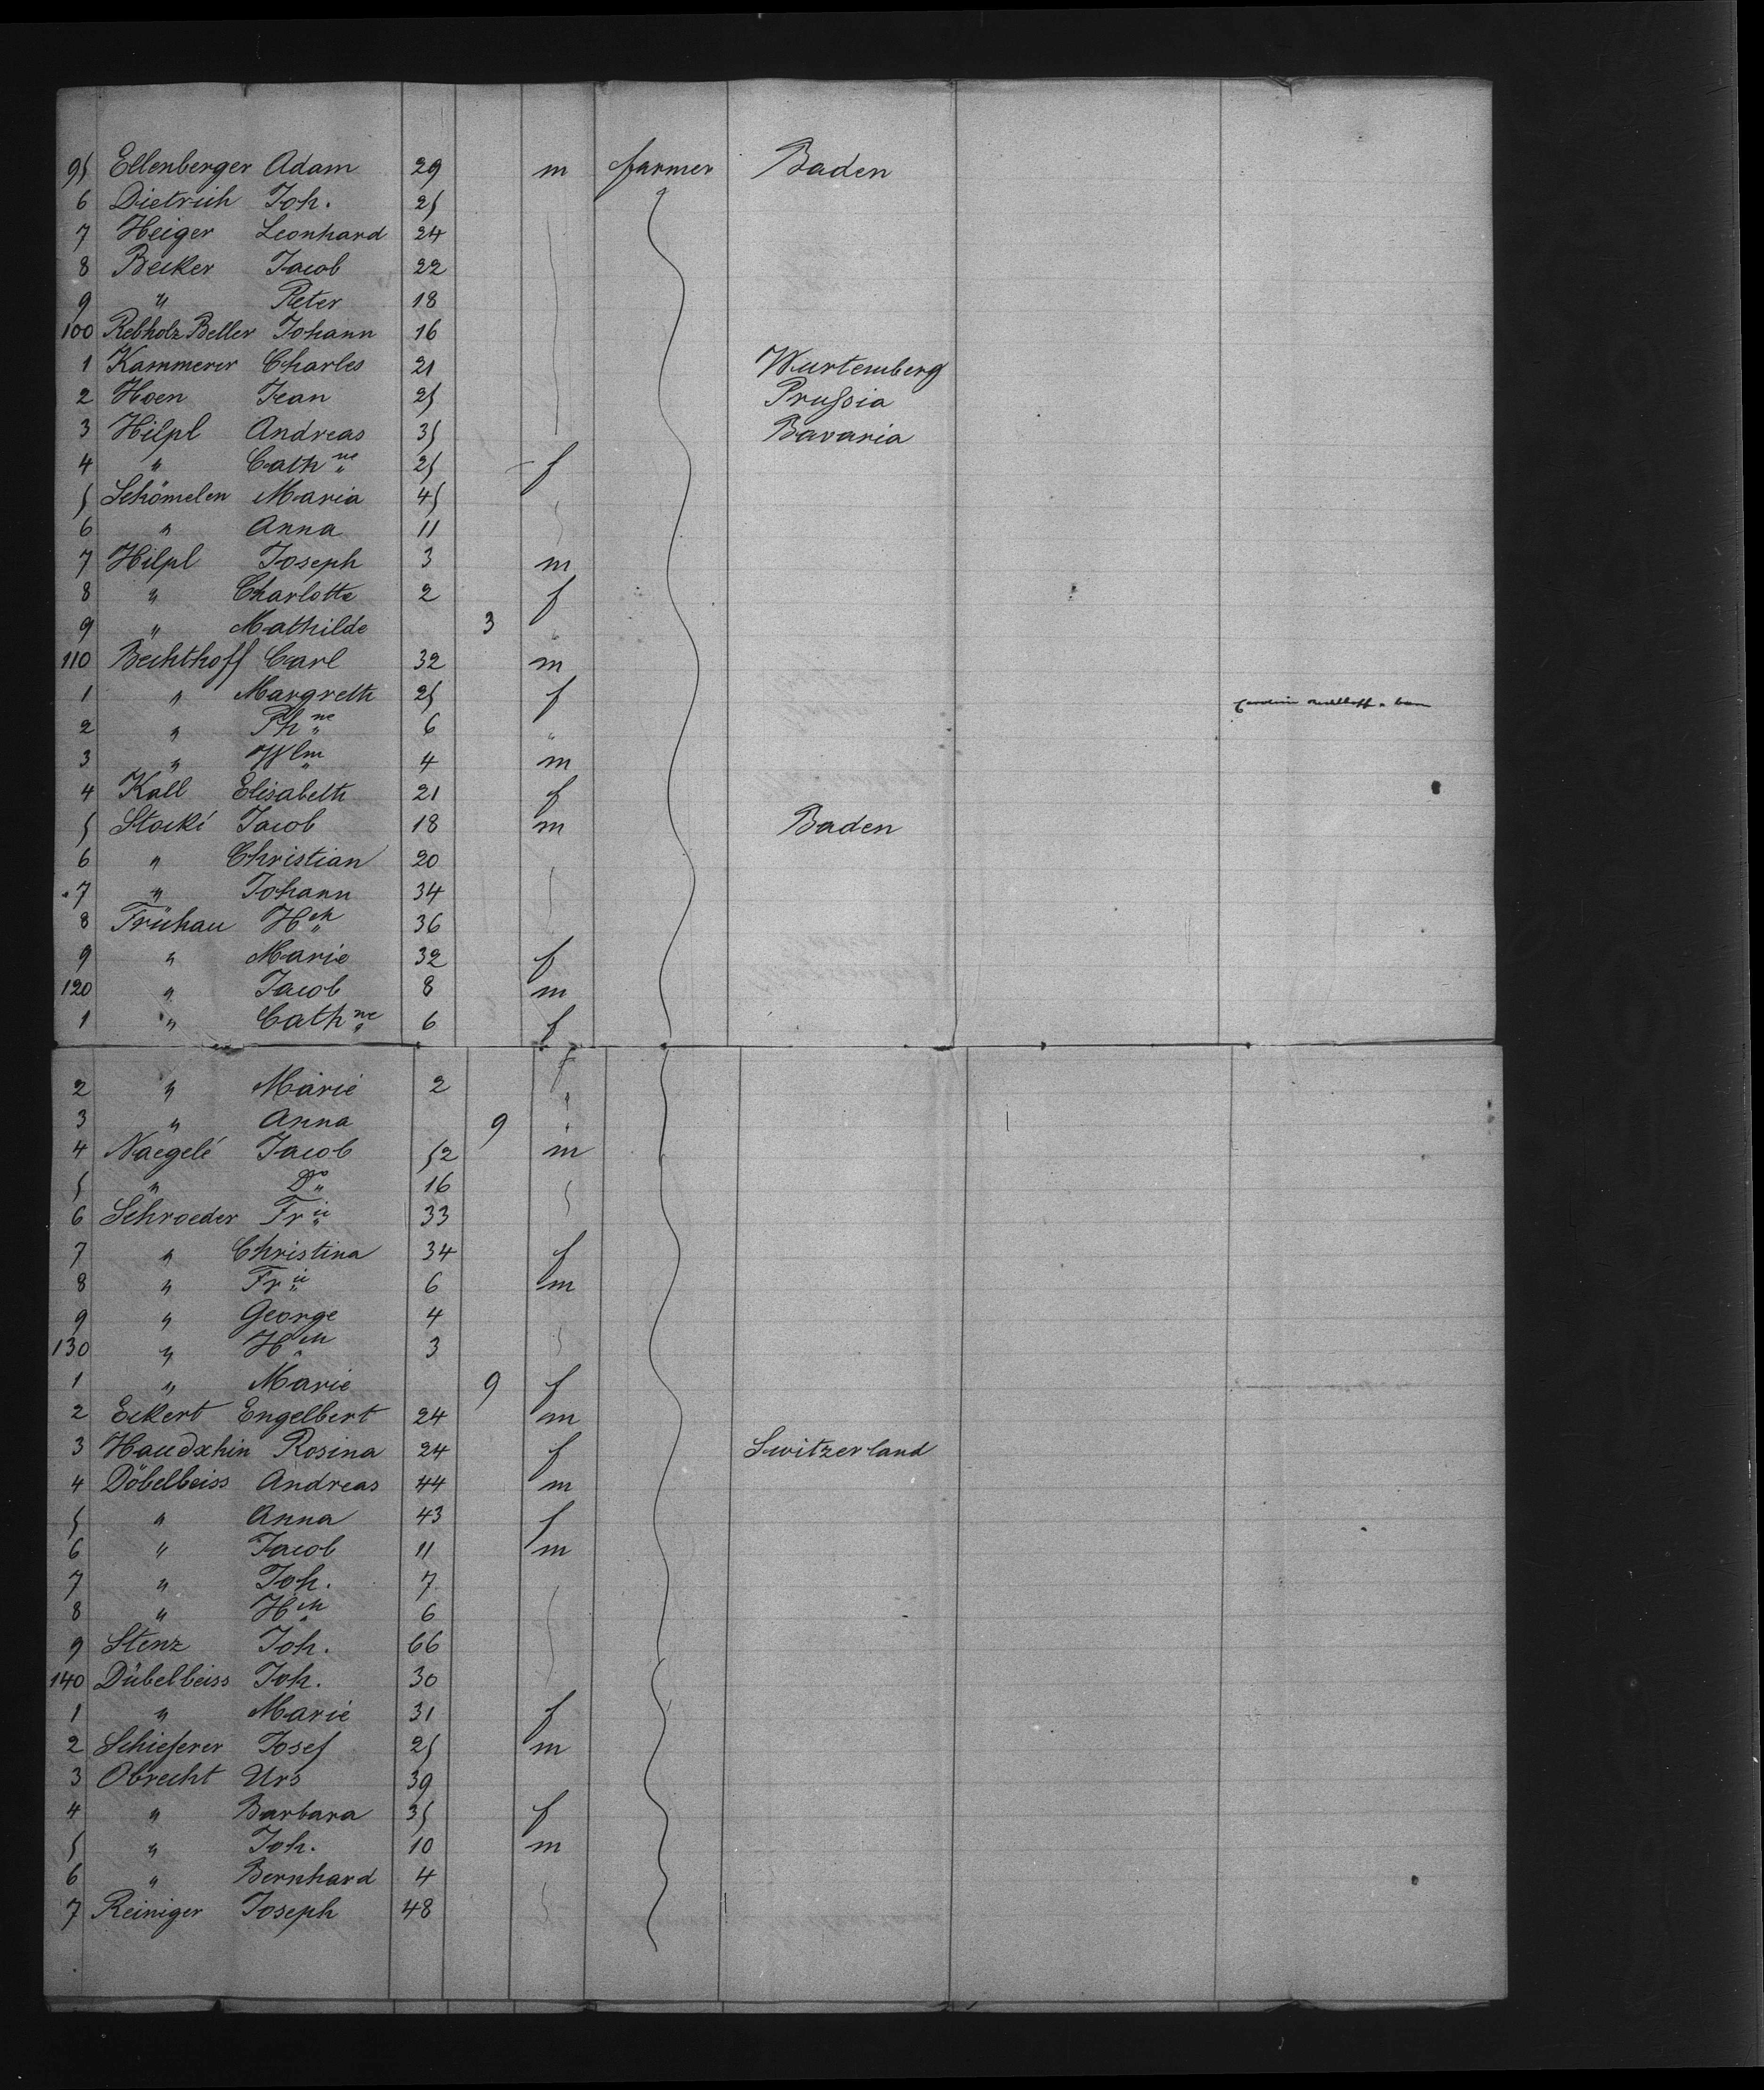 95 Ellenberger Adam 29 m farmer Baden
6 Dietrich Joh. 25
7 Heiger Leonhard 24
8 Becker Jacob 22
9 " Peter 18
100 Rebholz Beller Johann 16
1 Kammerer Charles 21 Wurtemberg
2 Hoen Jean 25 Prussia
3 Hilpl Andreas 35 Bavaria
4 " Cathne 25 f
5 Schömelen Maria 45
6 " Anna 11
7 Hilpl Joseph 3 m
8 " Charlotte 2 f
9 " Mathilde 3 "
110 Bechthoff Carl 32 m
1 " Margreth 25 f
2 " Phne 6 "
3 " Wlm 4 m
4 Kall Elisabeth 21 f
5 Stocké Jacob 18 m Baden
6 " Christian 20
7 " Johann 34
8 Frühau Hch 36
9 " Marie 32 f
120 " Jacob 8 m
1 " Cathne 6 f
2 " Marie 2 "
3 " Anna 9 "
4 Naegelé Jacob 52 m
5 " Do 16
6 Schroeder Fr 33
7 " Christina 34 f
8 " Fr 6 m
9 " George 4
130 " Hch 3
1 " Marie 9 f
2 Eckert Engelbert 24 m
3 Rosina 24 f Switzerland
4 Döbelbeiss Andreas 44 m
5 " Anna 43 f
6 " Jacob 11 m
7 " Joh. 7
8 " Hch 6
9 Stenz Joh. 66
140 Dübelbeiss Joh. 30
1 " Marie 31 f
2 Schieferer Josef 25 m
3 Obrecht Urs 39
4 " Barbara 35 f
5 " Joh. 10 m
6 " Bernhard 4
7 Reiniger Joseph 48